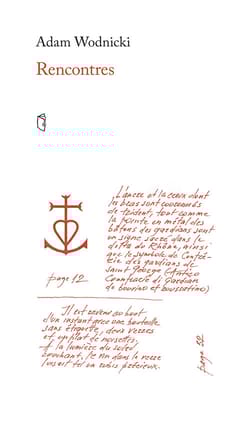 Adam Wodnicki
Rencontres
L'ancre et la croix dont
les bras sont couronnés
de trident, tout comme
la pointe en métal des
bâtons des gardians sont
un signe sacré dans le
delta du Rhône, ainsi
que le symbole de Confré-
rie des gardians de
Saint George (Antico
Counfrarié di Gardian
de bouvino et roussatino)
page 12
Il est revenu au bout
d'un instant avec une bouteille
sans étiquette, deux verres
et un plat de noisettes.
À la lumière du soleil
couchant, le vin dans le verre
luisait tel un rubis précieux.
page 52